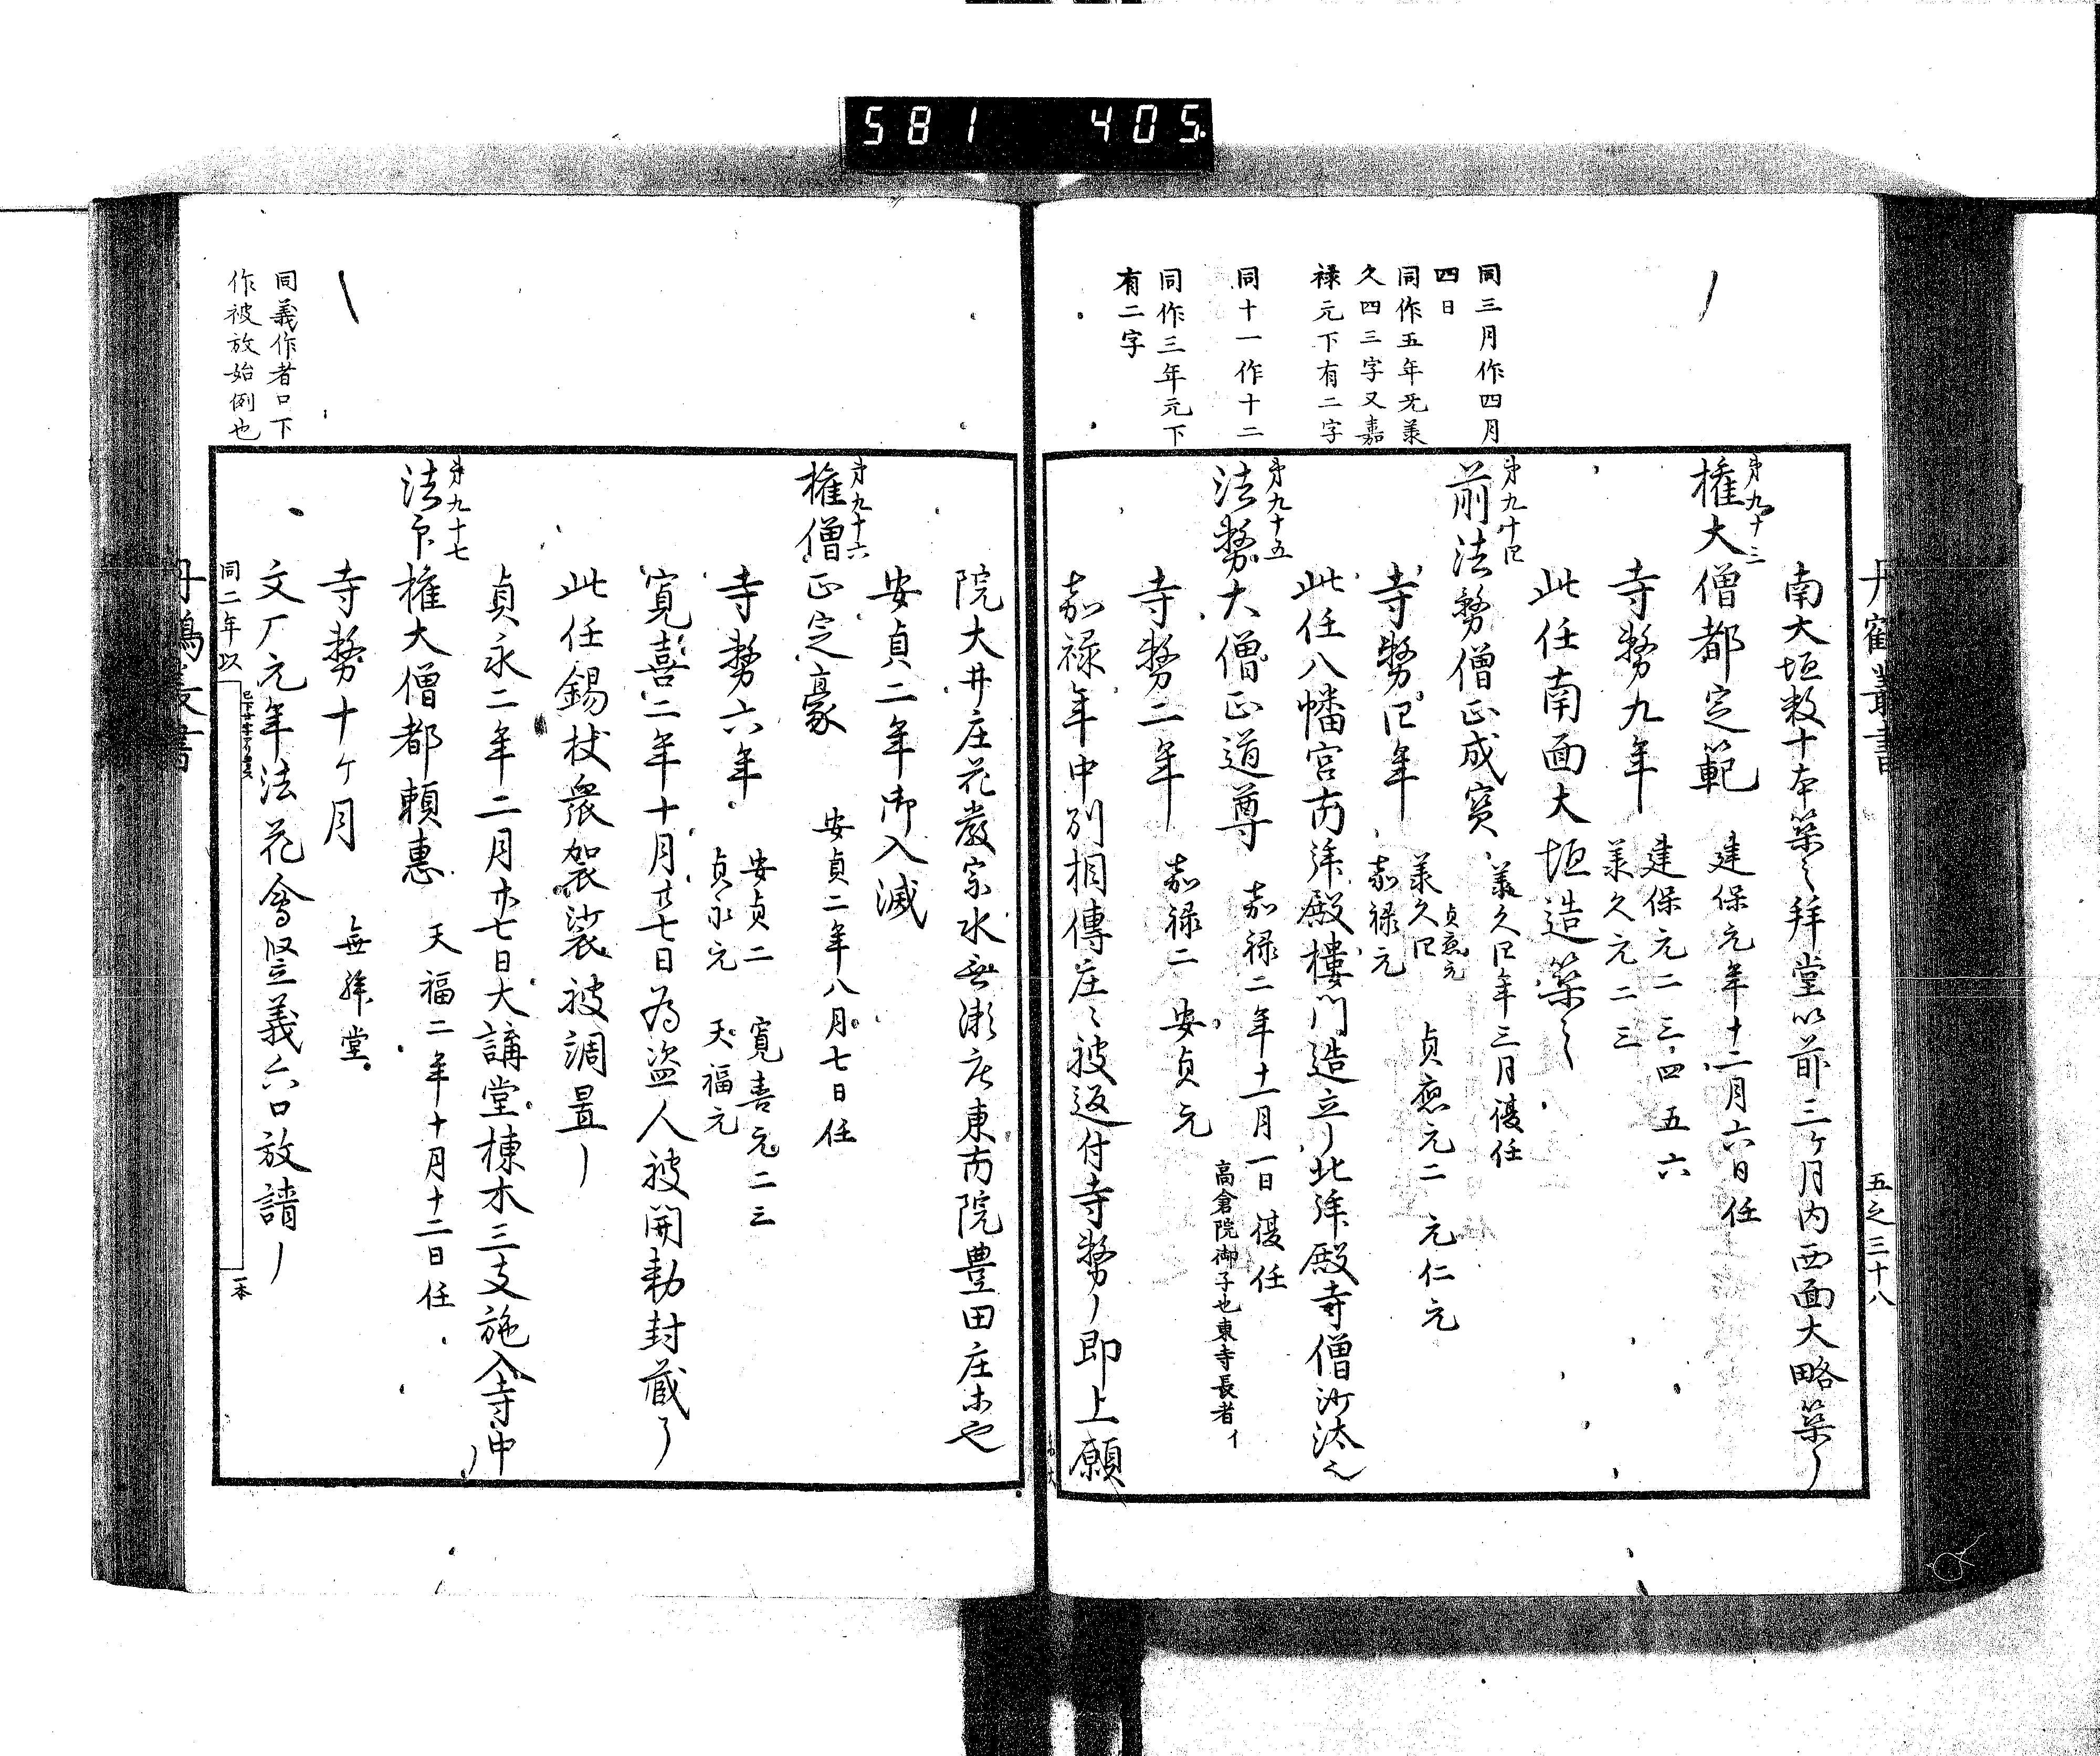 581 405
丹鶴叢書
五之三十八
同三月作四月
四日
同作五年旡羕
久四三字又嘉
禄元下有二字
同十一作十二
同作三年元下
有二字
南大垣数十本築々拝堂以前三ケ月内西面大略築了
第九十三
権大僧都定範 建保元年十二月六日任
寺務九年 建保元二三四五六
羕久元二三
此任南面大垣造築々
第九十四
前法務僧正成宝 羕久四年三月還任
寺務四年 羕久四 貞応元 貞應元二 元仁元
嘉禄元
此任八幡宮両拝殿樓門造立了北拝殿寺僧沙汰之
第九十五
法務大僧正道尊 嘉禄二年十一月一日還任
高倉院御子也東寺長者イ
寺務二年 嘉禄二 安貞元
嘉禄年中別相傳庄々被返付寺務了即上願
院大井庄花嚴宗水無瀬庄東南院豊田庄木也
安貞二年御入滅
第九十六
権僧正定豪 安貞二年八月七日任
寺務六年 安貞二 寛喜元二三
貞永元 天福元
寛喜二年十月廿七日為盗人被開勅封蔵了
此任錫杖衆袈裟被調置了
貞永二年二月廿七日大講堂棟木三支施入寺中了
第九十七
法印権大僧都頼恵 天福二年十月十二日任
寺務十ケ月 無拝堂
文厂元年法花會竪義六口放請了
同二年以
一本
同義作者口下
作被放始例也
丹鶴叢書